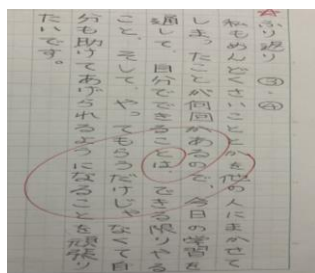 ふり返り ③・④
私もめんどくさいことを他の人にまかせて
しまったことが何回かあるので、今日の学習を
通して、自分でできることは、できる限りやる
こと、そして、やってもらうだけじゃなくて自
分も助けてあげられるようになることを頑張り
たいです。